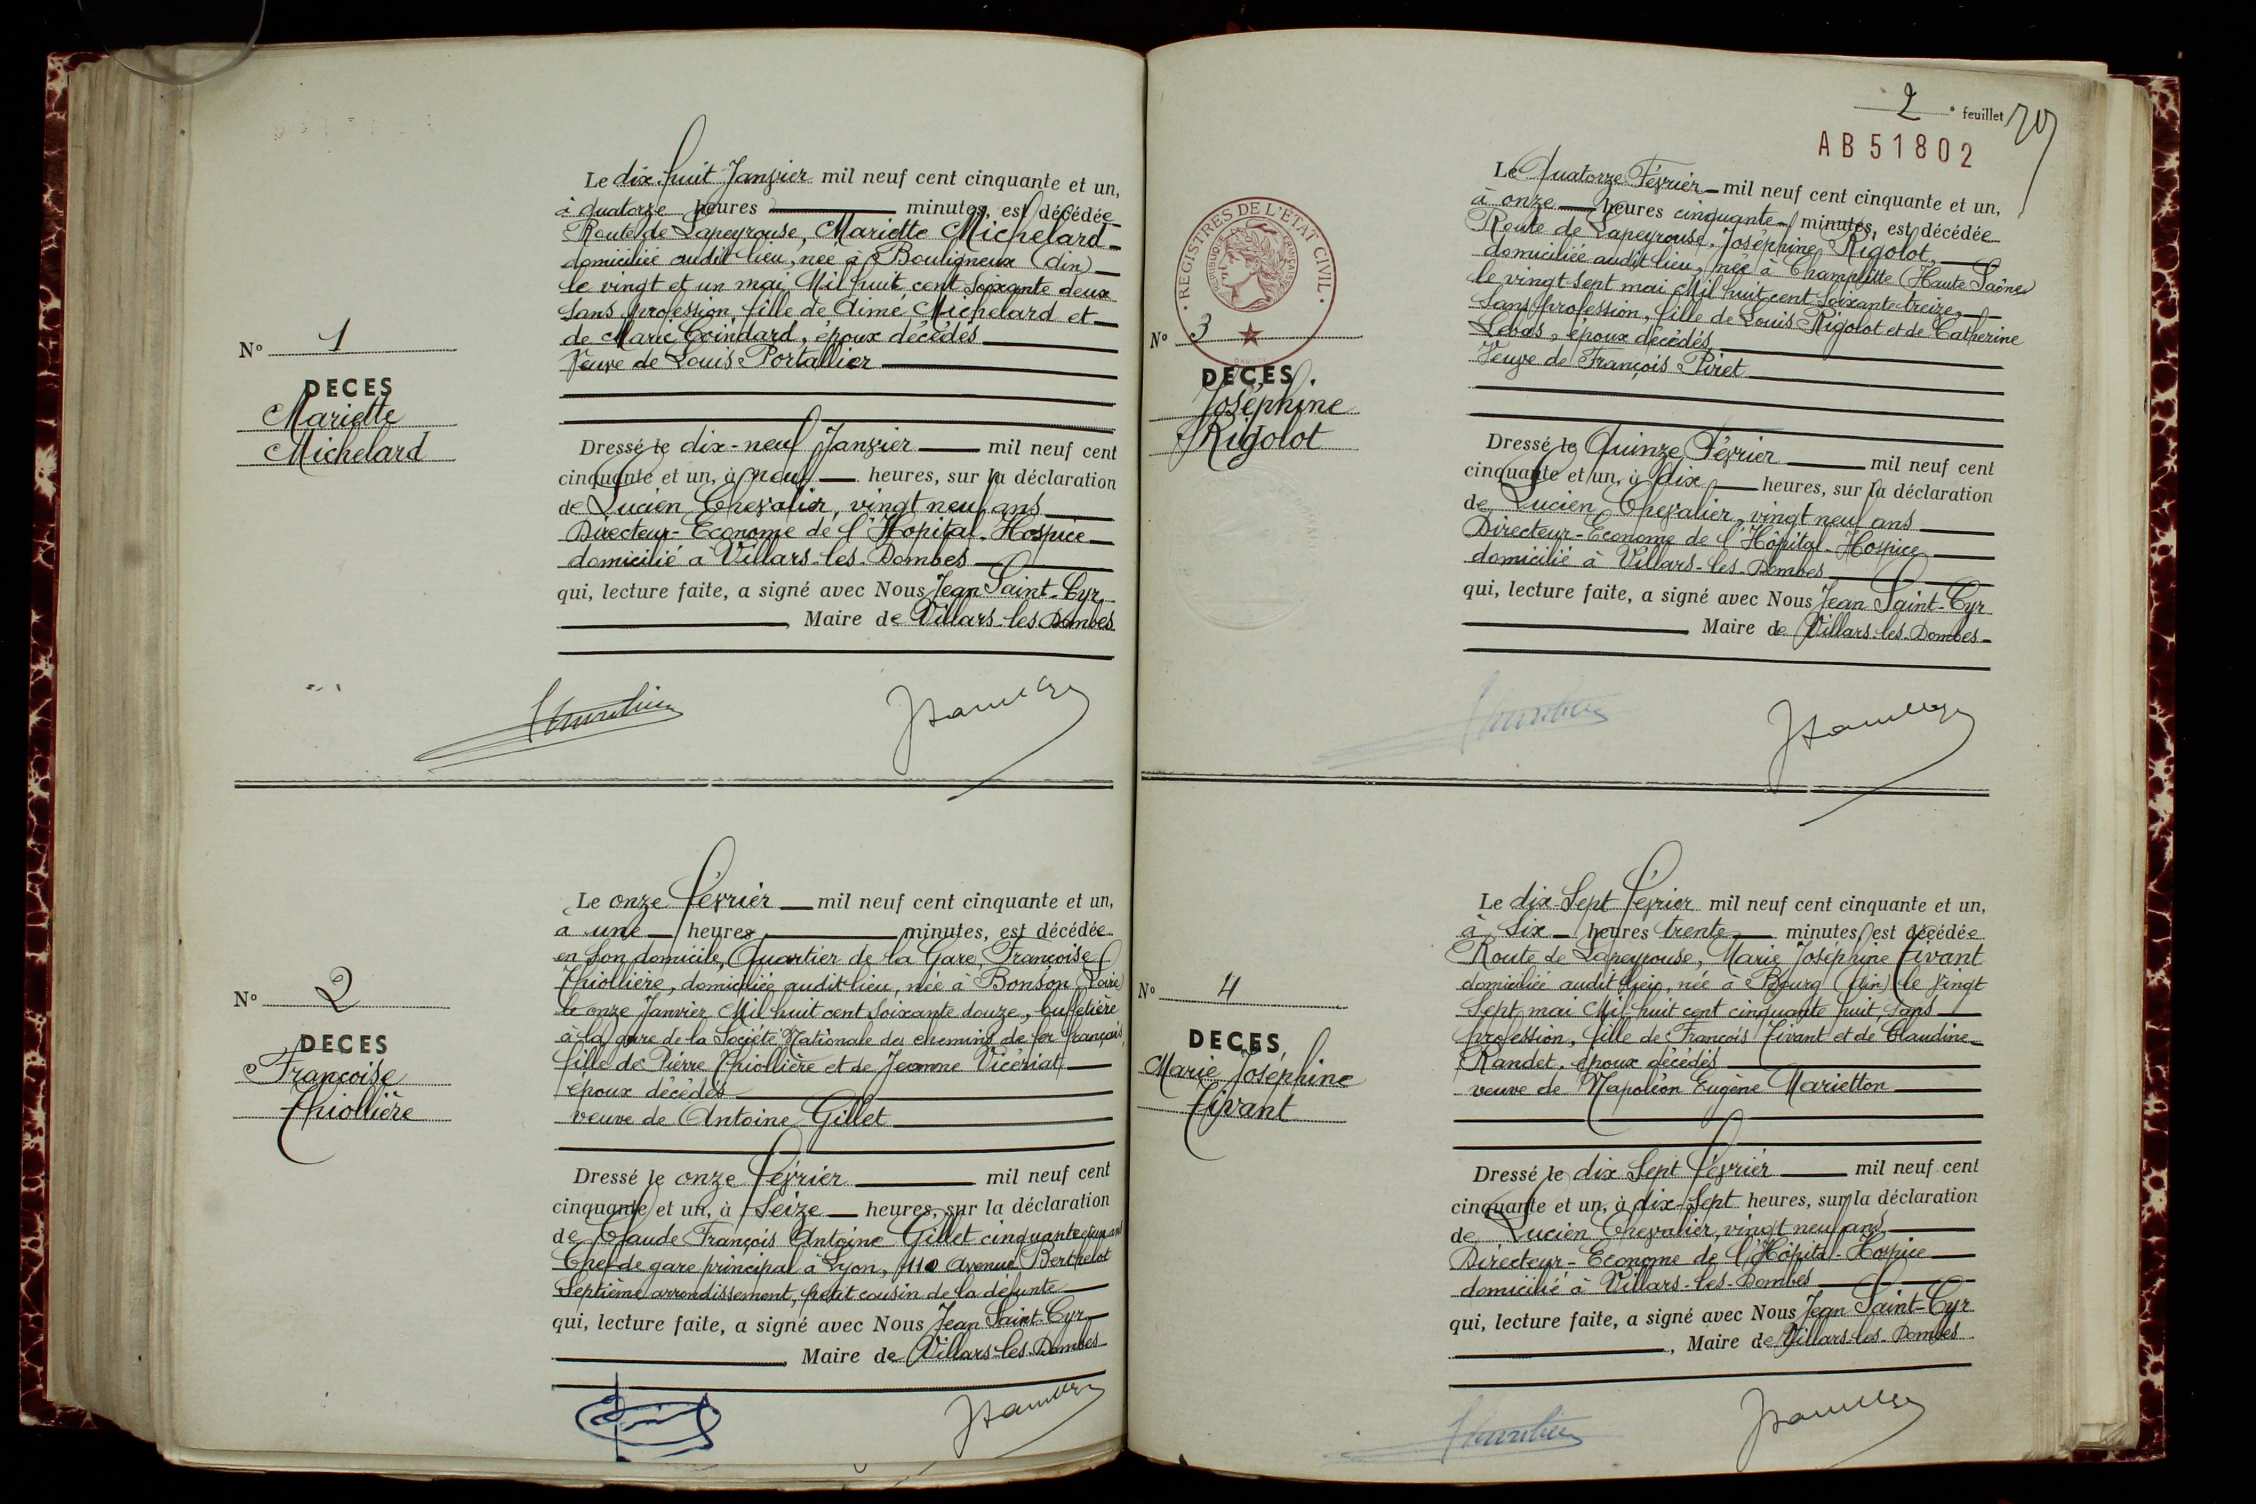 Le dix huit Janvier mil neuf cent cinquante et un,
à quatorze heures minutes, est décédée
Route de Lapeyrouse, Mariette Michelard
domiciliée audit lieu, née à Bouligneux (Ain)
le vingt et un mai Mil huit cent soixante deux
sans profession, fille de Aimé Michelard et
de Marie Coindard, époux décédés
Veuve de Louis Portallier
N° 1
DECES
Mariette
Michelard
Dressé le dix-neuf Janvier mil neuf cent
cinquante et un, à neuf heures, sur la déclaration
de Lucien Chevalier, vingt neuf ans
Directeur-Econome de l'Hôpital-Hospice
domicilié à Villars-les-Dombes
qui, lecture faite, a signé avec Nous Jean Saint-Cyr
Maire de Villars-les-Dombes
Le onze Février mil neuf cent cinquante et un,
à une heures minutes, est décédée
en son domicile, Quartier de la Gare, Françoise
Thiollière, domiciliée audit lieu, née à Bonson (Loire)
le onze Janvier Mil huit cent soixante douze, buffetière
à la gare de la Société Nationale des chemins de fer français,
fille de Pierre Thiollière et de Jeanne Vicériat
époux décédés
veuve de Antoine Gillet
N° 2
DECES
Françoise
Thiollière
Dressé le onze Février mil neuf cent
cinquante et un, à seize heures, sur la déclaration
de Claude François Antoine Gillet cinquante et un ans
Chef de gare principal à Lyon, 110 avenue Berthelot
Septième arrondissement, petit cousin de la défunte
qui, lecture faite, a signé avec Nous Jean Saint-Cyr
Maire de Villars-les-Dombes
2 e feuillet
AB51802
Le Quatorze Février mil neuf cent cinquante et un,
à onze heures cinquante minutes, est décédée
Route de Lapeyrouse, Joséphine Rigolot,
domiciliée audit lieu, née à Champlitte (Haute Saône)
le vingt sept mai Mil huit cent soixante treize,
sans profession, fille de Louis Rigolot et de Catherine
Lebas, époux décédés
Veuve de François Piret
REGISTRES DE L'ETAT CIVIL
N° 3
DECES
Joséphine
Rigolot
Dressé le Quinze Février mil neuf cent
cinquante et un, à dix heures, sur la déclaration
de Lucien Chevalier, vingt neuf ans
Directeur-Econome de l'Hôpital-Hospice
domicilié à Villars-les-Dombes
qui, lecture faite, a signé avec Nous Jean Saint-Cyr
Maire de Villars-les-Dombes
Le dix-sept Février mil neuf cent cinquante et un,
à six heures trente minutes, est décédée
Route de Lapeyrouse, Marie Joséphine Tivant
domiciliée audit lieu, née à Bourg (Ain) le vingt
sept mai Mil-huit cent cinquante huit, sans
profession, fille de François Tivant et de Claudine
Randet, époux décédés
veuve de Napoléon Eugène Marietton
N° 4
DECES
Marie Joséphine
Tivant
Dressé le dix sept Février mil neuf cent
cinquante et un, à dix-sept heures, sur la déclaration
de Lucien Chevalier, vingt neuf ans
Directeur-Econome de l'Hôpital-Hospice
domicilié à Villars-les-Dombes
qui, lecture faite, a signé avec Nous Jean Saint-Cyr
, Maire de Villars-les-Dombes